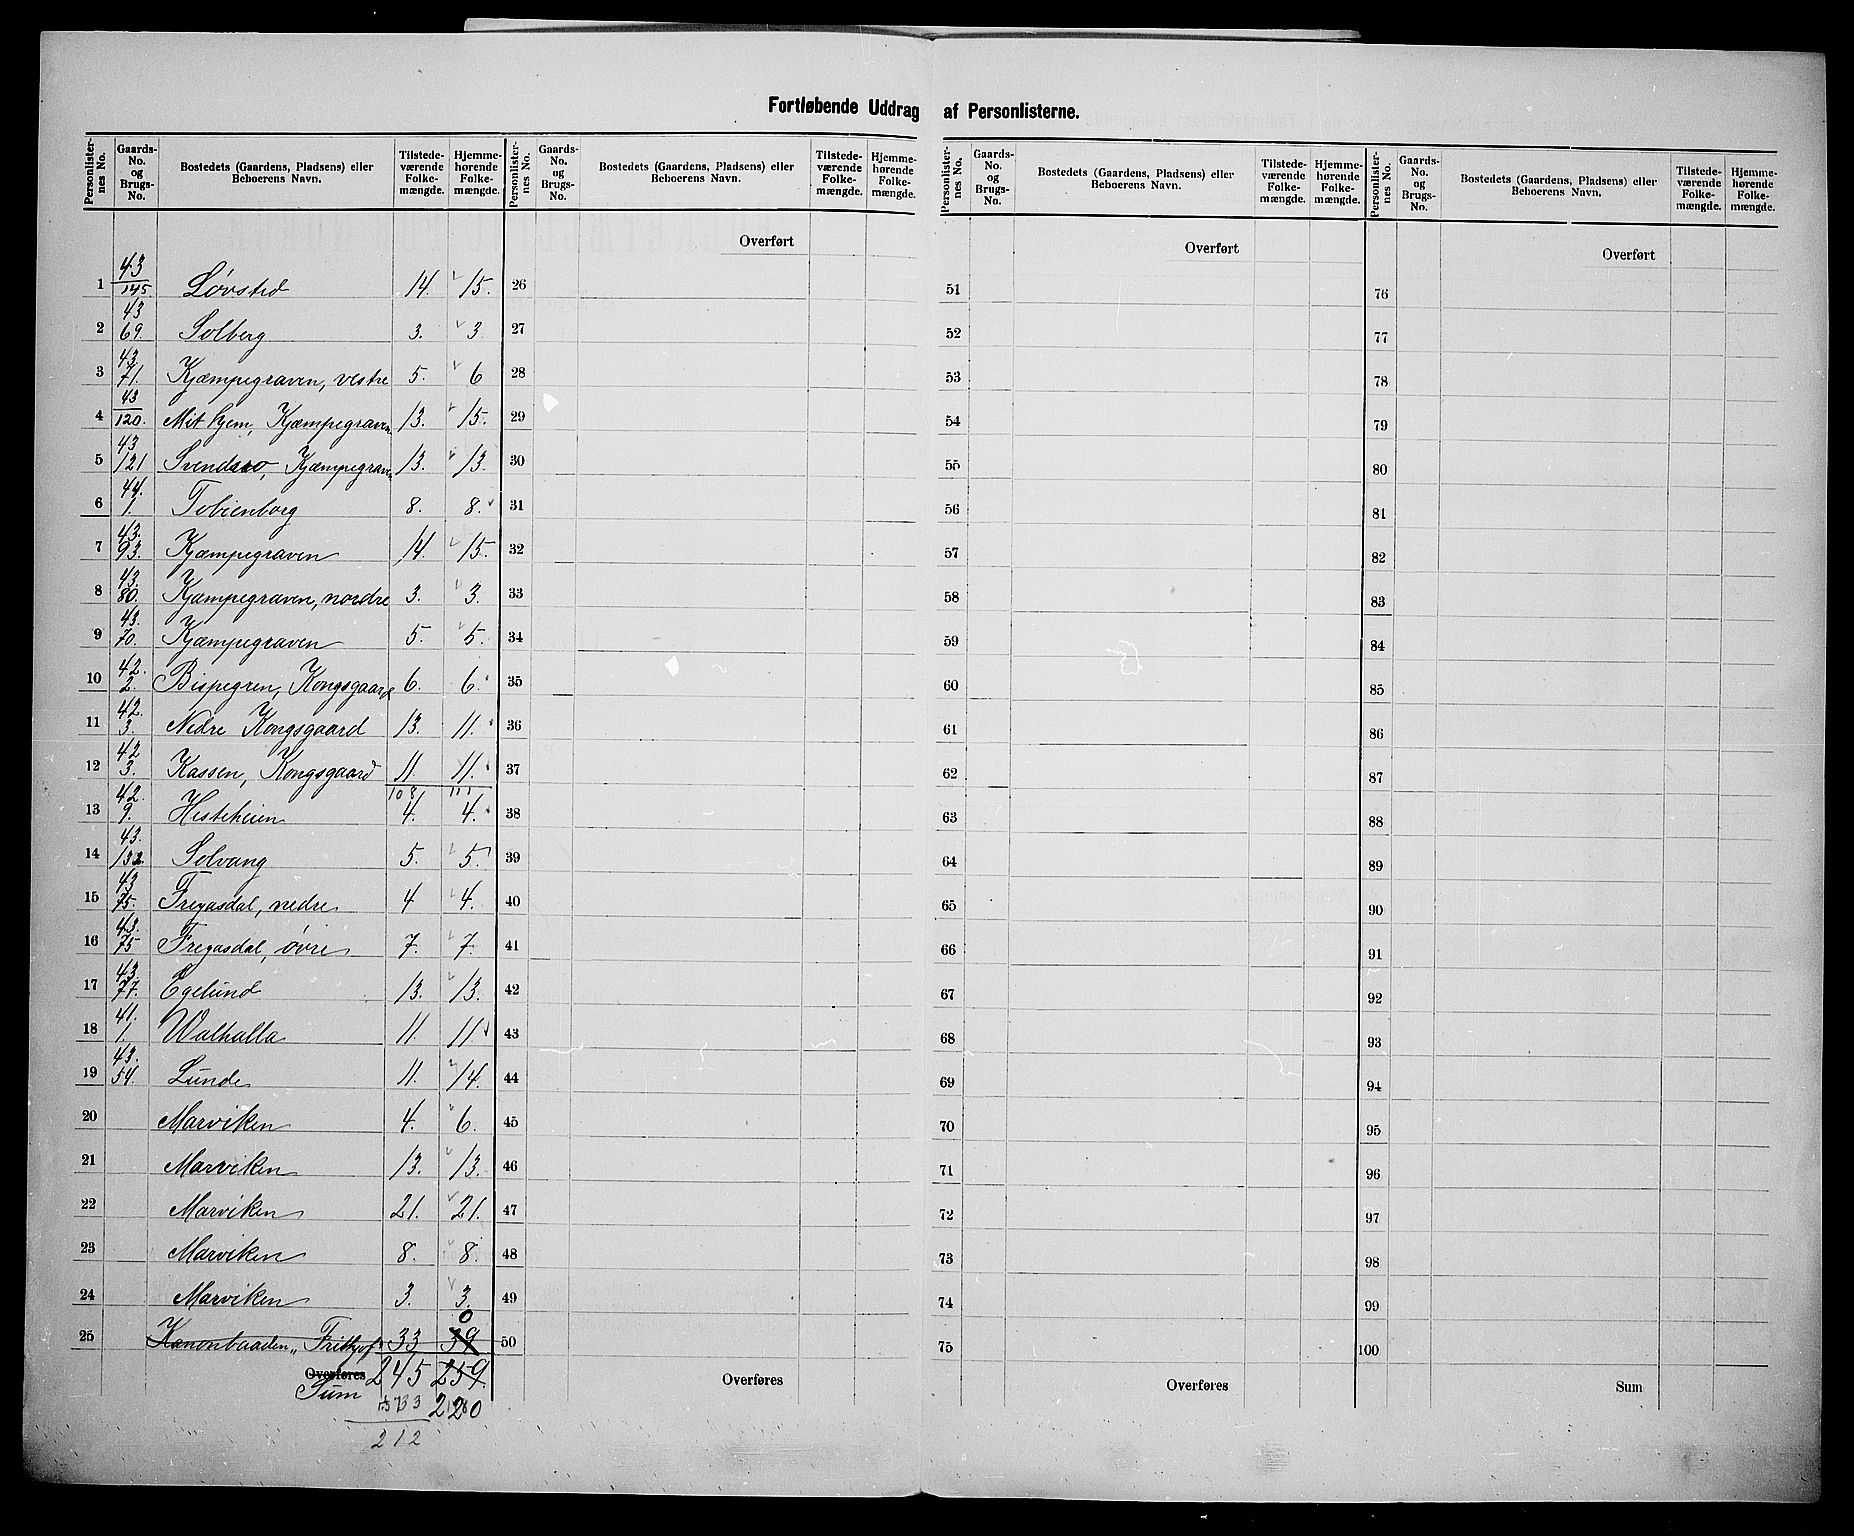 Fortløbende Uddrag af Personlisterne.
Personlister-nes No. | Gaards-No. og Brugs-No. | Bostedets (Gaardens, Pladsens) eller Beboerens Navn. | Tilstede-værende Folke-mængde. | Hjemme-hørende Folke-mængde.
1 | 43/145 | Løvsted | 14. | 15.
2 | 43 69. | Solberg | 3. | 3
3 | 43. 71. | Kjæmpegraven, vestre | 5. | 6
4 | 43/120. | Mit hjem, Kjæmpegraven | 13. | 15.
5 | 43/121 | Svendsro, Kjæmpegraven | 13. | 13.
6 | 44. 1. | Tobienborg | 8. | 8.
7 | 43. 93. | Kjæmpegraven | 14. | 15.
8 | 43. 80. | Kjæmpegraven, nordre | 3. | 3.
9 | 43. 70. | Kjæmpegraven | 5. | 5.
10 | 42. 2. | Bispegren, Kongsgaard | 6. | 6.
11 | 42. 3. | Nedre Kongsgaard | 13. | 11.
12 | 42 3. | Kassen, Kongsgaard | 11. | 11.
108 | 111
13 | 42. 9. | Hesteheien | 4. | 4.
14 | 43. 132. | Solvang | 5. | 5.
15 | 43 75. | Fregasdal, nedre | 4 | 4.
16 | 43. 75 | Fregasdal, øvre | 7. | 7.
17 | 43. 77. | Egelund | 13. | 13.
18 | 41. 1. | Walhalla | 11. | 11
19 | 43. 54. | Lunde | 11. | 14.
20 | Marviken | 4. | 6.
21 | Marviken | 13. | 13.
22 | Marviken | 21. | 21.
23 | Marviken | 8. | 8.
24 | Marviken | 3. | 3.
0
25 | Kanonbaaden „Frithjof" | 33 | 39
Overføres 245 259.
Sum 33 220
212
Personlister-nes No. | Gaards-No. og Brugs-No. | Bostedets (Gaardens, Pladsens) eller Beboerens Navn. | Tilstede-værende Folke-mængde. | Hjemme-hørende Folke-mængde.
Overført
26
27
28
29
30
31
32
33
34
35
36
37
38
39
40
41
42
43
44
45
46
47
48
49
50
Overføres
Personlister-nes No. | Gaards-No. og Brugs-No. | Bostedets (Gaardens, Pladsens) eller Beboerens Navn. | Tilstede-værende Folke-mængde. | Hjemme-hørende Folke-mængde.
Overført
51
52
53
54
55
56
57
58
59
60
61
62
63
64
65
66
67
68
69
70
71
72
73
74
75
Overføres
Personlister-nes No. | Gaards-No. og Brugs-No. | Bostedets (Gaardens, Pladsens) eller Beboerens Navn. | Tilstede-værende Folke-mængde. | Hjemme-hørende Folke-mængde.
Overført
76
77
78
79
80
81
82
83
84
85
86
87
88
89
90
91
92
93
94
95
96
97
98
99
100
Sum